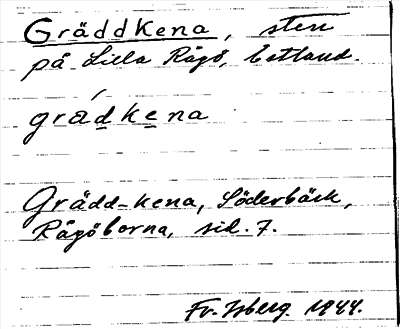 Gräddkena, sten
på Lilla Rågö, Estland.
grädkena
Grädd-kena, Söderbäck,
Rågöborna, sid. 7.
Fr. Isberg 1944.